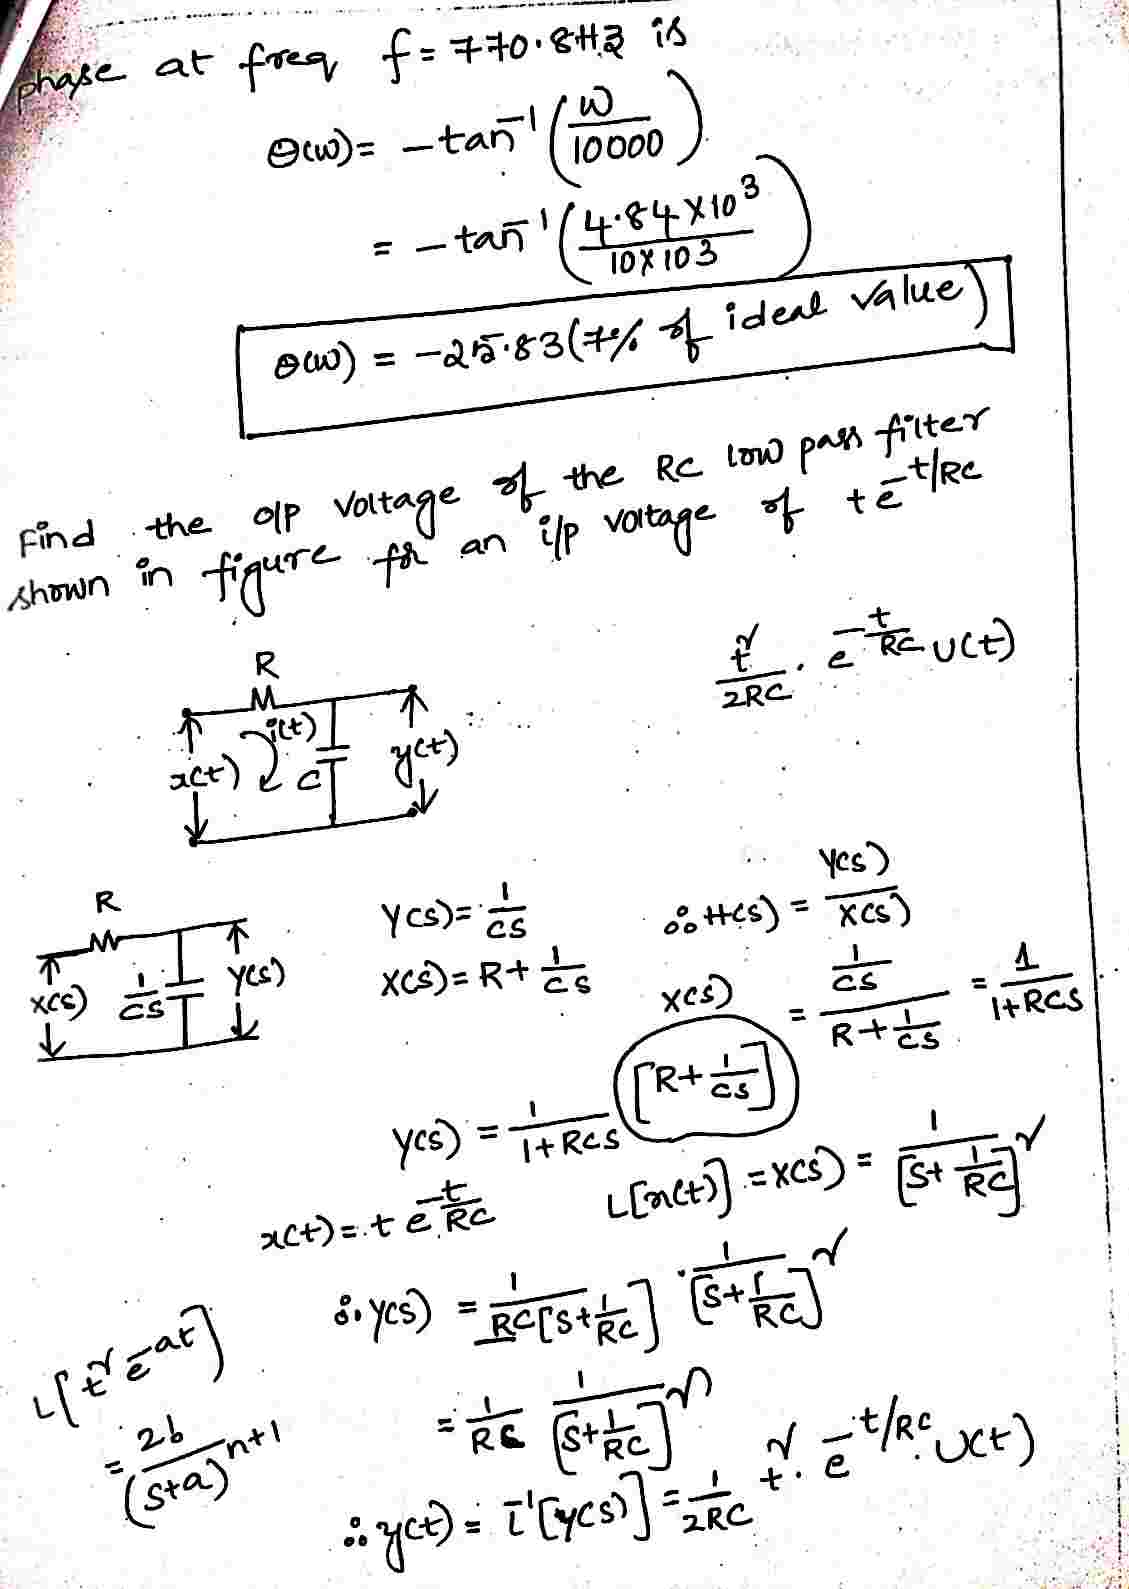 phase at freq f = 770.8Hz is
θ(ω) = -tan⁻¹(ω/10000)
= -tan⁻¹(4.84×10³/10×10³)
θ(ω) = -25.83 (7% of ideal value)
Find the o/p voltage of the RC low pass filter
shown in figure for an i/p voltage of t e^-t/RC
t²/2RC · e^-t/RC u(t)
R
i(t)
x(t) C y(t)
R
X(s) 1/CS Y(s)
Y(s) = 1/CS
X(s) = R + 1/CS
∴ H(s) = Y(s)/X(s)
= (1/CS)/(R + 1/CS) = 1/(1+RCS)
X(s)
Y(s) = 1/(1+RCS) [R + 1/CS]
x(t) = t e^-t/RC L[x(t)] = X(s) = 1/[S + 1/RC]²
∴ Y(s) = 1/(RC[S + 1/RC]) · 1/[S + 1/RC]²
= 1/RC 1/[S + 1/RC]^n
∴ y(t) = L⁻¹[Y(s)] = 1/2RC t² · e^-t/RC u(t)
L[t² e^-at]
= 2b/(S+a)^n+1